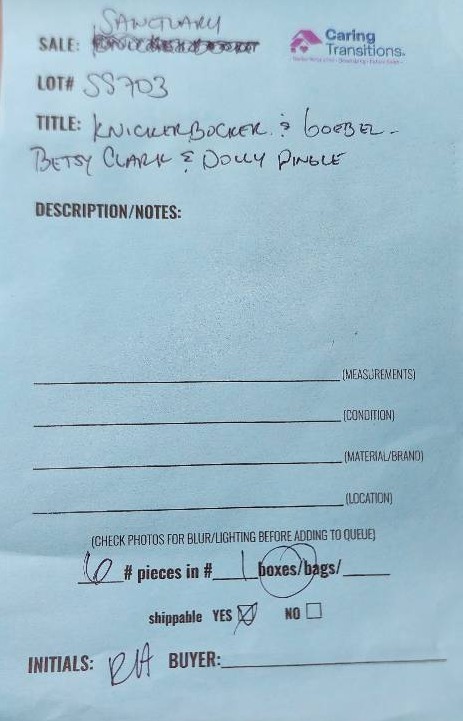 SANCTUARY
SALE:
Caring Transitions.
LOT# SS703
TITLE: KNICKERBOCKER & GOEBEL -
BETSY CLARK & DOLLY DINGLE
DESCRIPTION/NOTES:
(MEASUREMENTS)
(CONDITION)
(MATERIAL/BRAND)
(LOCATION)
(CHECK PHOTOS FOR BLUR/LIGHTING BEFORE ADDING TO QUEUE)
6 # pieces in # 1 boxes/bags/
shippable YES NO
INITIALS: RH BUYER: